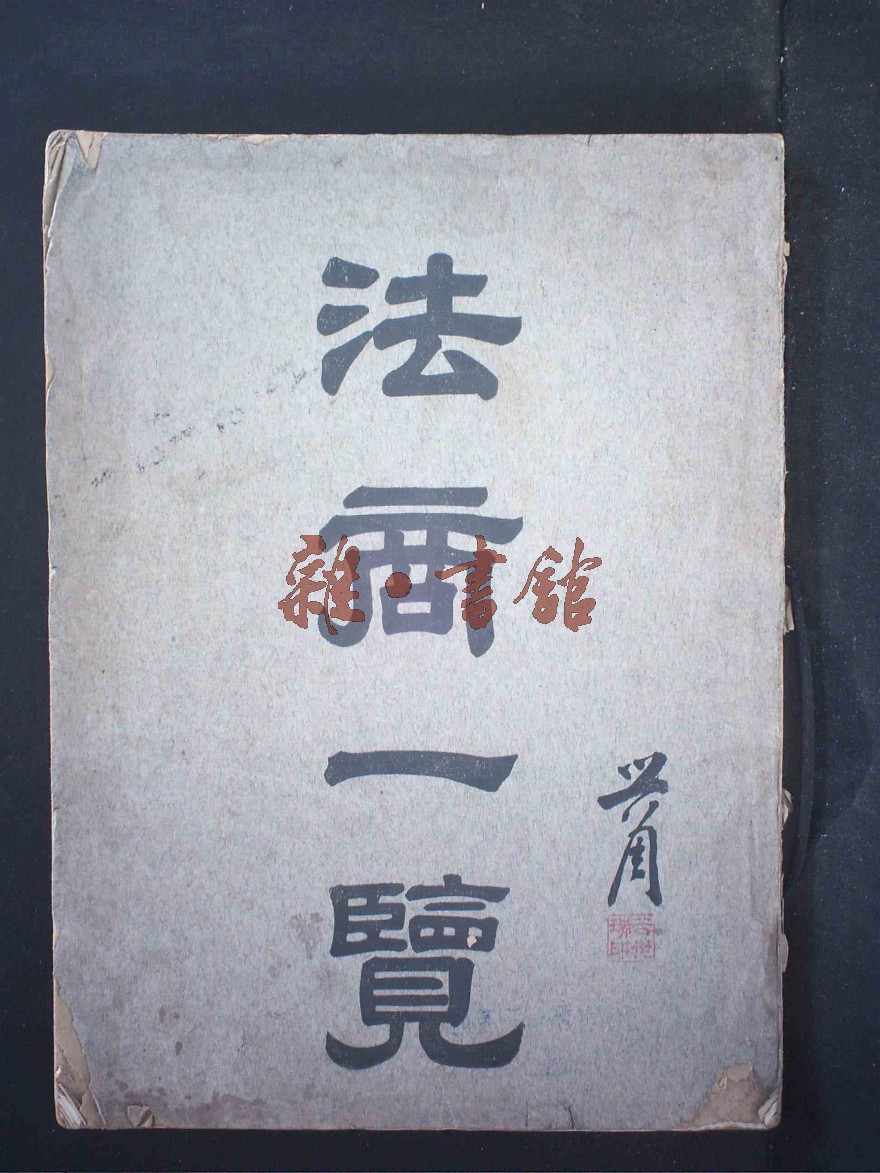 法商一覽
雜·書館